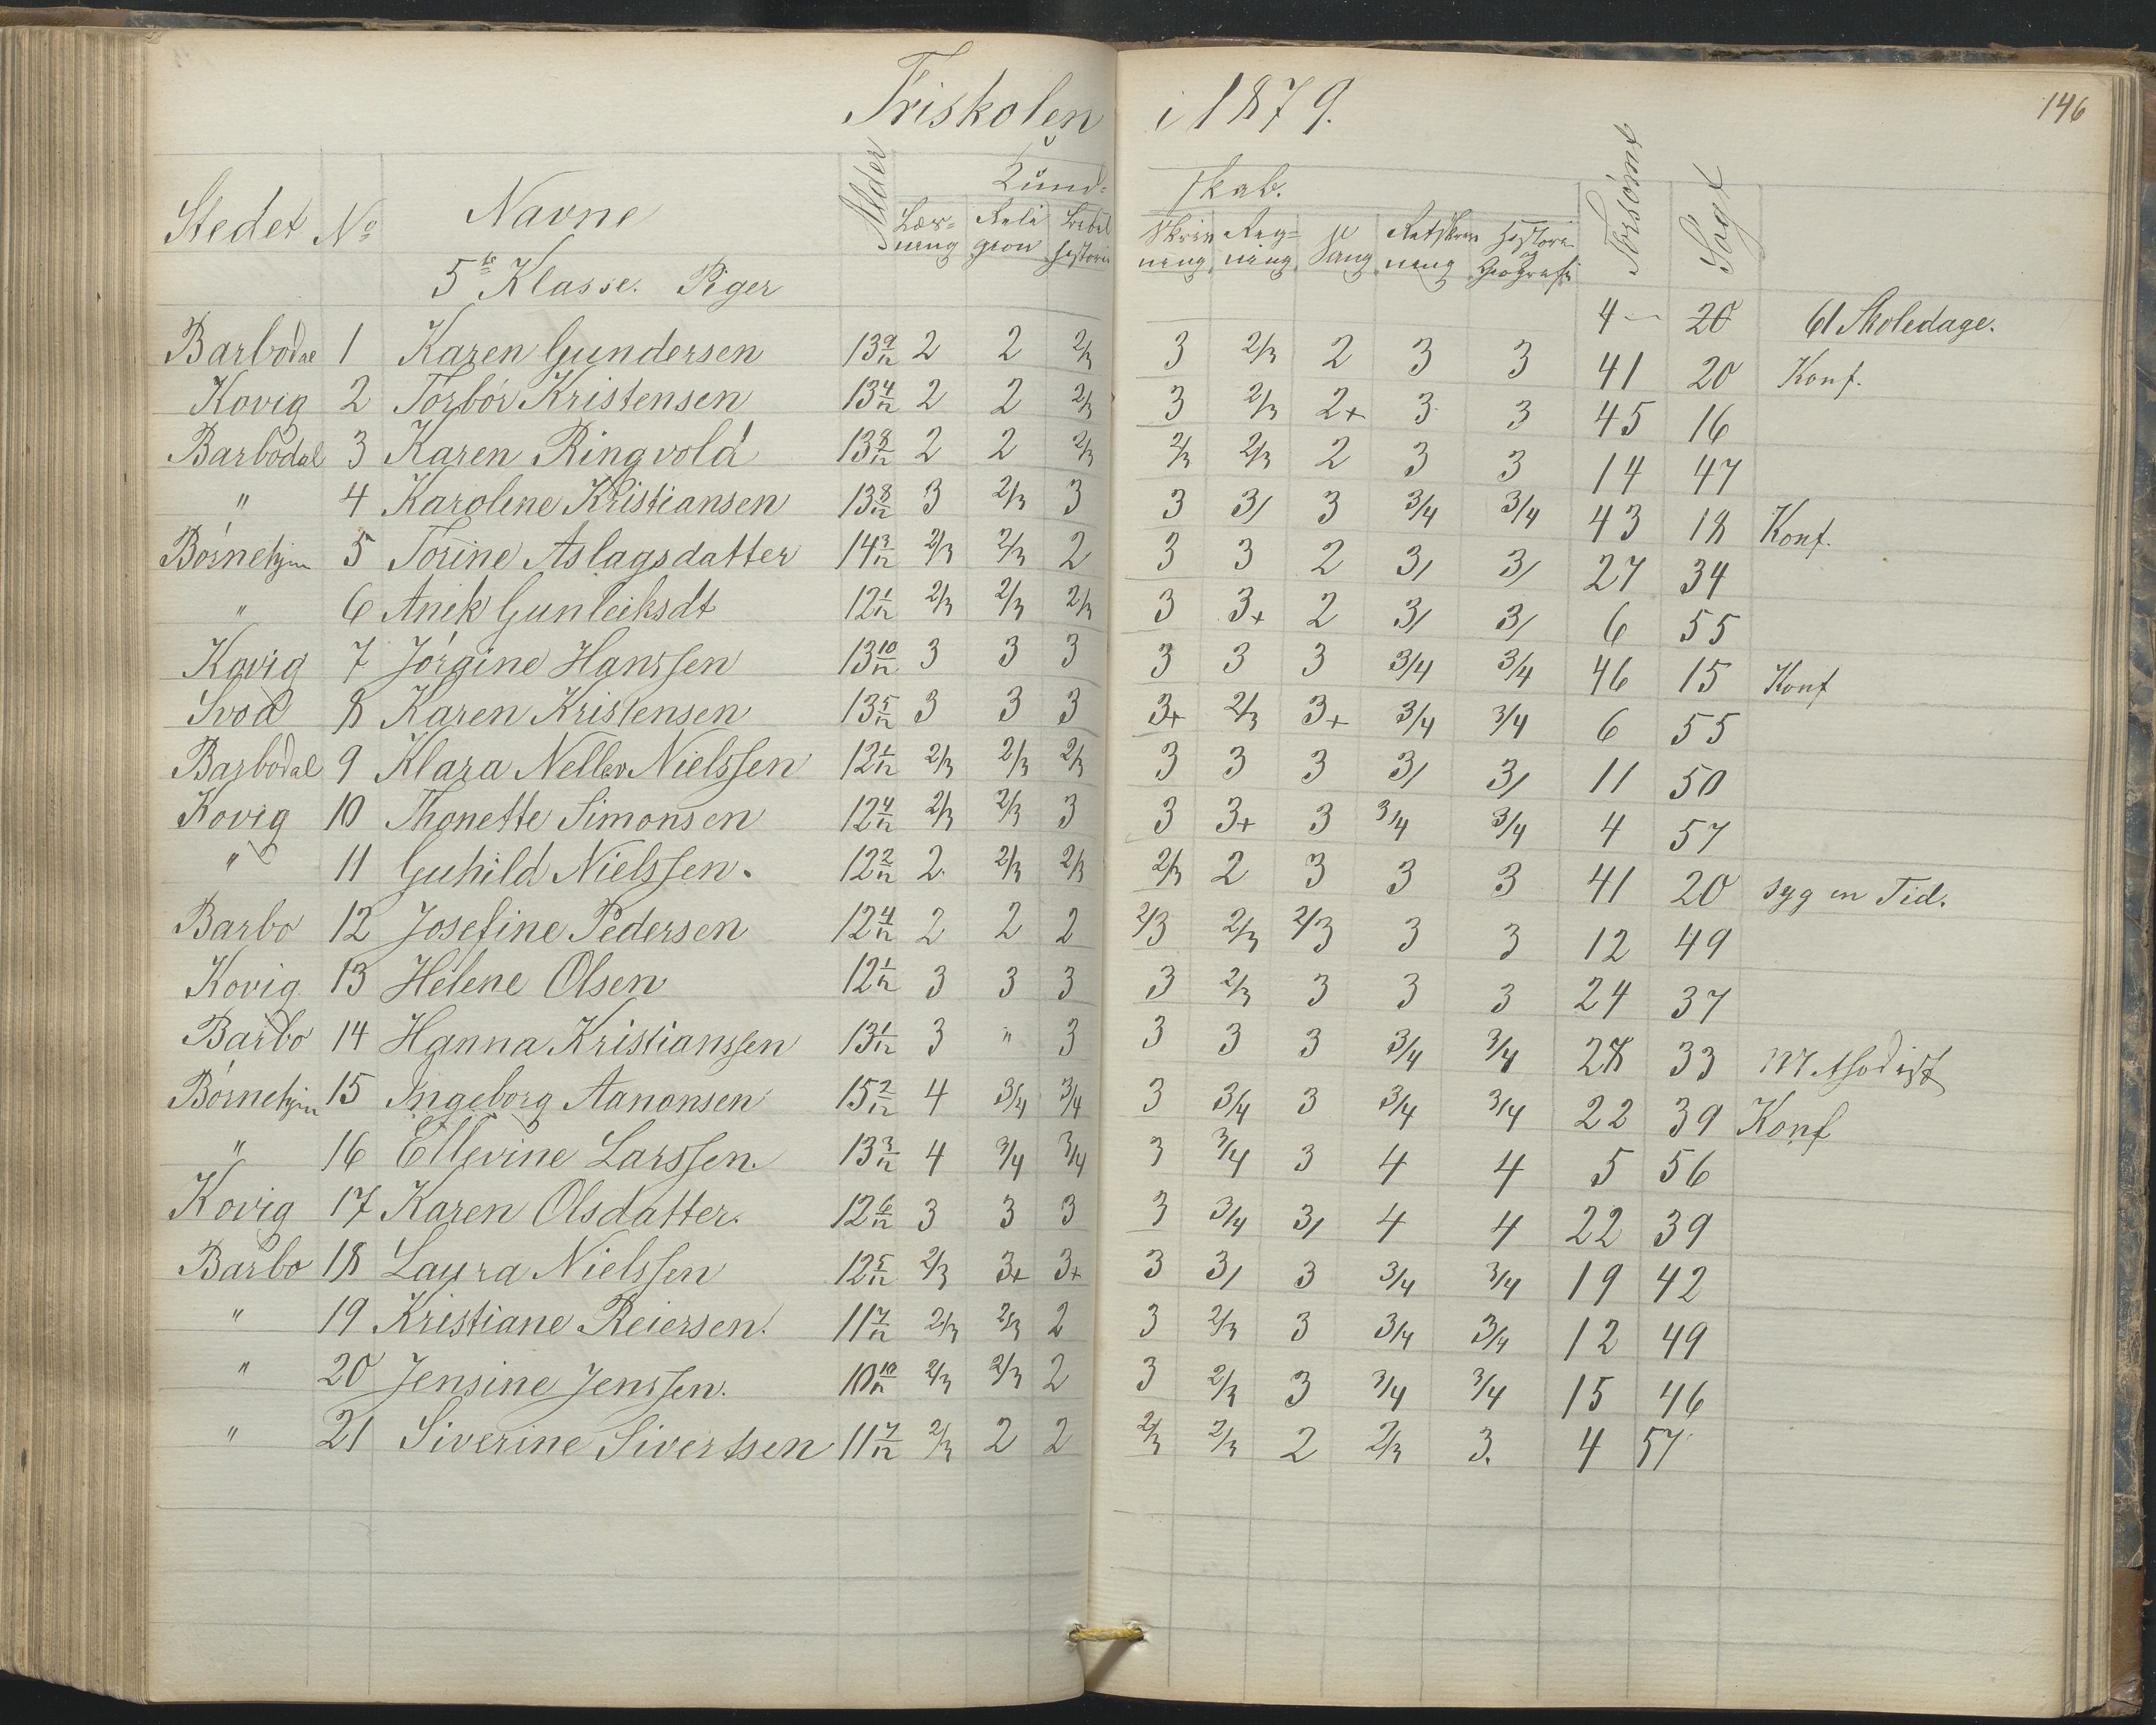 Friskolen i 1879.
146
Stedet No Navne Alder Kund- skab. Forsømt Søgt
Læs- ning Reli gion Bibel historie Skriv ning Reg- ning Sang Retskriv ning Historie og Geografi
5te Klasse. Piger
4 — 20 61 Skoledage.
Barbodal 1 Karen Gundersen 13 9/12 2 2 2/3 3 2/3 2 3 3 41 20 Konf.
Kovig 2 Torbór Kristensen 13 4/12 2 2 2/3 3 2/3 2+ 3 3 45 16
Barbodal 3 Karen Ringvold 13 8/12 2 2 2/3 2/3 2/3 2 3 3 14 47
" 4 Karoline Kristiansen 13 8/12 3 2/3 3 3 3/ 3 3/4 3/4 43 18 Konf.
Børnehjm 5 Torine Aslagsdatter 14 3/12 2/3 2/3 2 3 3 2 3/ 3/ 27 34
" 6 Anek Gunleiksdt 12 1/12 2/3 2/3 2/3 3 3+ 2 3/ 3/ 6 55
Kovig 7 Jørgine Hanssen 13 10/12 3 3 3 3 3 3 3/4 3/4 46 15 Konf
Svod 8 Karen Kristensen 13 5/12 3 3 3 3+ 2/3 3+ 3/4 3/4 6 55
Barbodal 9 Klara Nielssen 12 1/12 2/3 2/3 2/3 3 3 3 3/ 3/ 11 50
Kovig 10 Thonette Simonsen 12 4/12 2/3 2/3 3 3 3+ 3 3/4 3/4 4 57
" 11 Guhild Nielssen. 12 2/12 2 2/3 2/3 2/3 2 3 3 3 41 20 syg en Tid.
Barbo 12 Josefine Pedersen 12 4/12 2 2 2 2/3 2/3 2/3 3 3 12 49
Kovig 13 Helene Olsen 12 1/12 3 3 3 3 2/3 3 3 3 24 37
Barbo 14 Hanna Kristianssen 13 1/12 3 " 3 3 3 3 3/4 3/4 28 33 Methodist
Børnehjm 15 Ingeborg Aanonsen 15 2/12 4 3/4 3/4 3 3/4 3 3/4 3/4 22 39 Konf
" 16 Ellevine Larssen. 13 3/12 4 3/4 3/4 3 3/4 3 4 4 5 56
Kovig 17 Karen Olsdatter. 12 6/12 3 3 3 3 3/4 3/ 4 4 22 39
Barbo 18 Laura Nielssen 12 5/12 2/3 3+ 3+ 3 3/ 3 3/4 3/4 19 42
" 19 Kristiane Reiersen. 11 7/12 2/3 2/3 2 3 2/3 3 3/4 3/4 12 49
" 20 Jensine Jenssen. 10 10/12 2/3 2/3 2 3 2/3 3 3/4 3/4 15 46
" 21 Siverine Sivertsen 11 7/12 2/3 2 2 2/3 2/3 2 2/3 3. 4 57